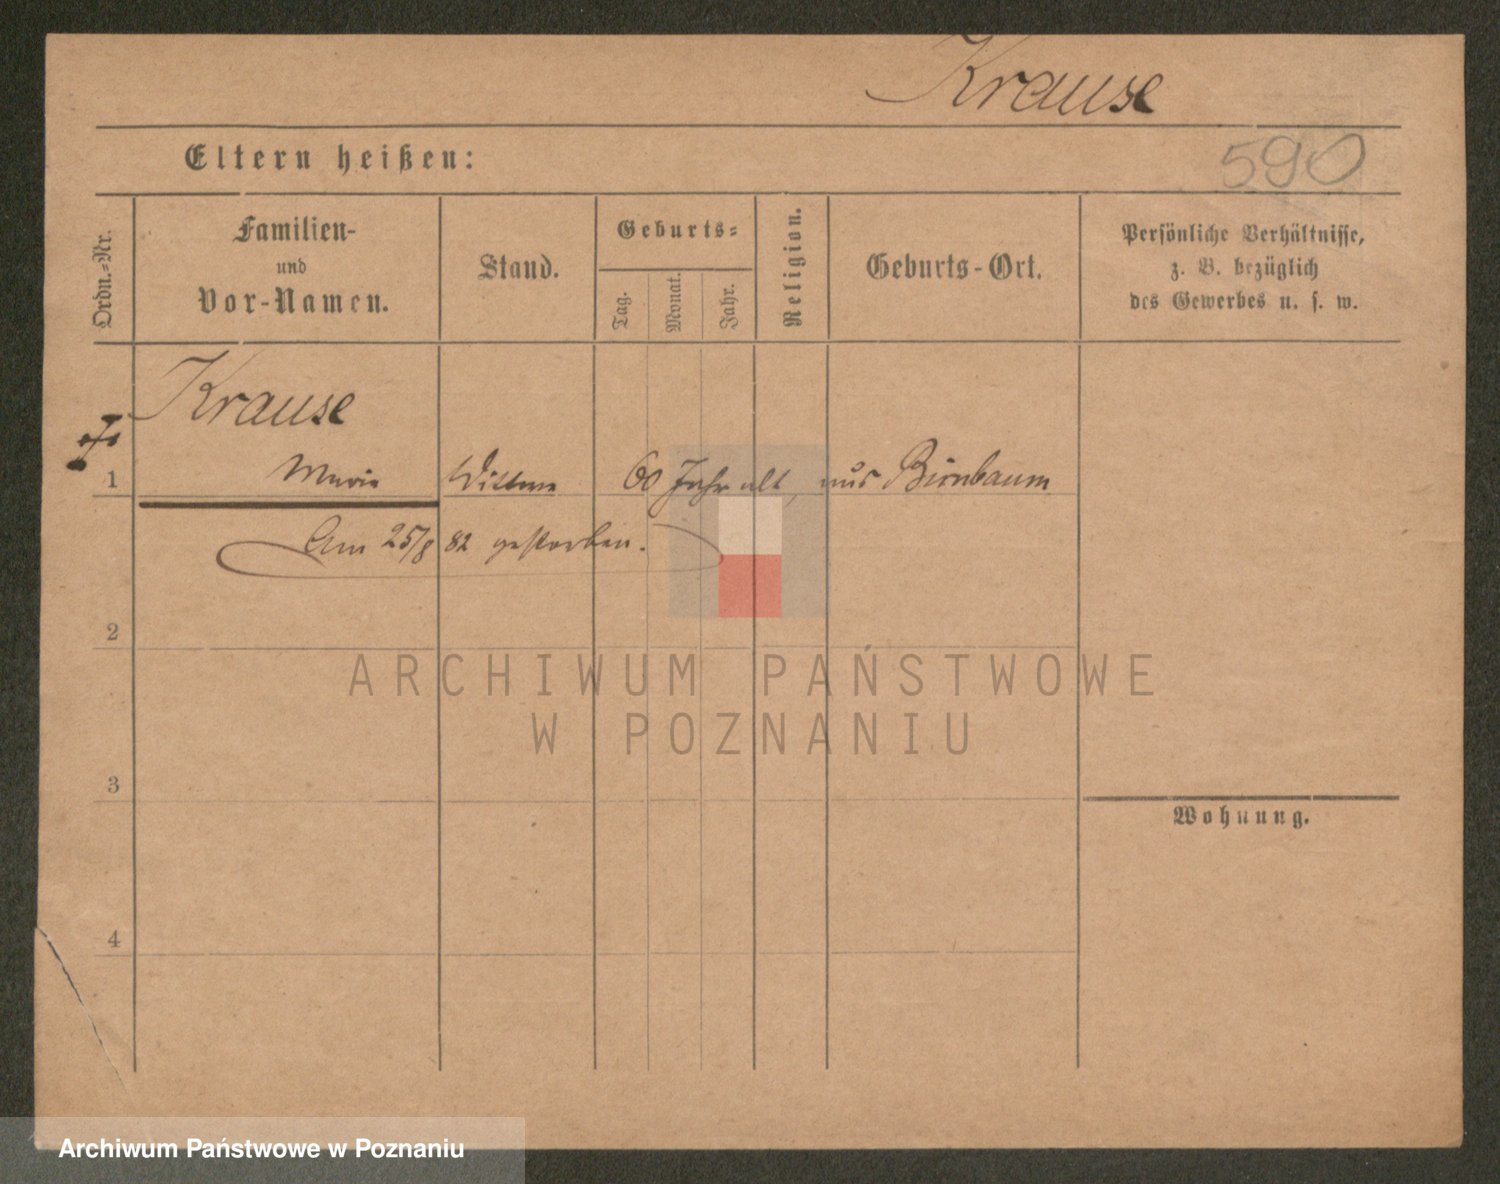 Krause
Eltern heißen:
590
Ordn.-Nr.
Familien-
und
Vor-Namen.
Stand.
Geburts-
Tag.
Monat.
Jahr.
Religion.
Geburts-Ort.
Persönliche Verhältnisse,
z. B. bezüglich
des Gewerbes u. s. w.
Krause
1 Marie Wittwe 60 Jahr alt, aus Birnbaum
Am 25/8 82 gestorben.
2
ARCHIWUM PAŃSTWOWE
W POZNANIU
3
Wohnung.
4
Archiwum Państwowe w Poznaniu